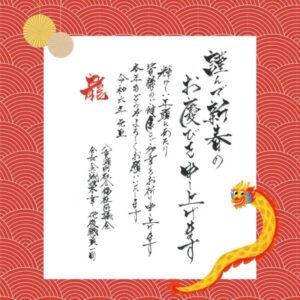 謹んで新春の
お慶びを申し上げます
輝かしい年頭にあたり
皆様のご健康とご多幸をお祈り申し上げます
本年もどうぞよろしくお願いいたします
令和六年 元旦
龍